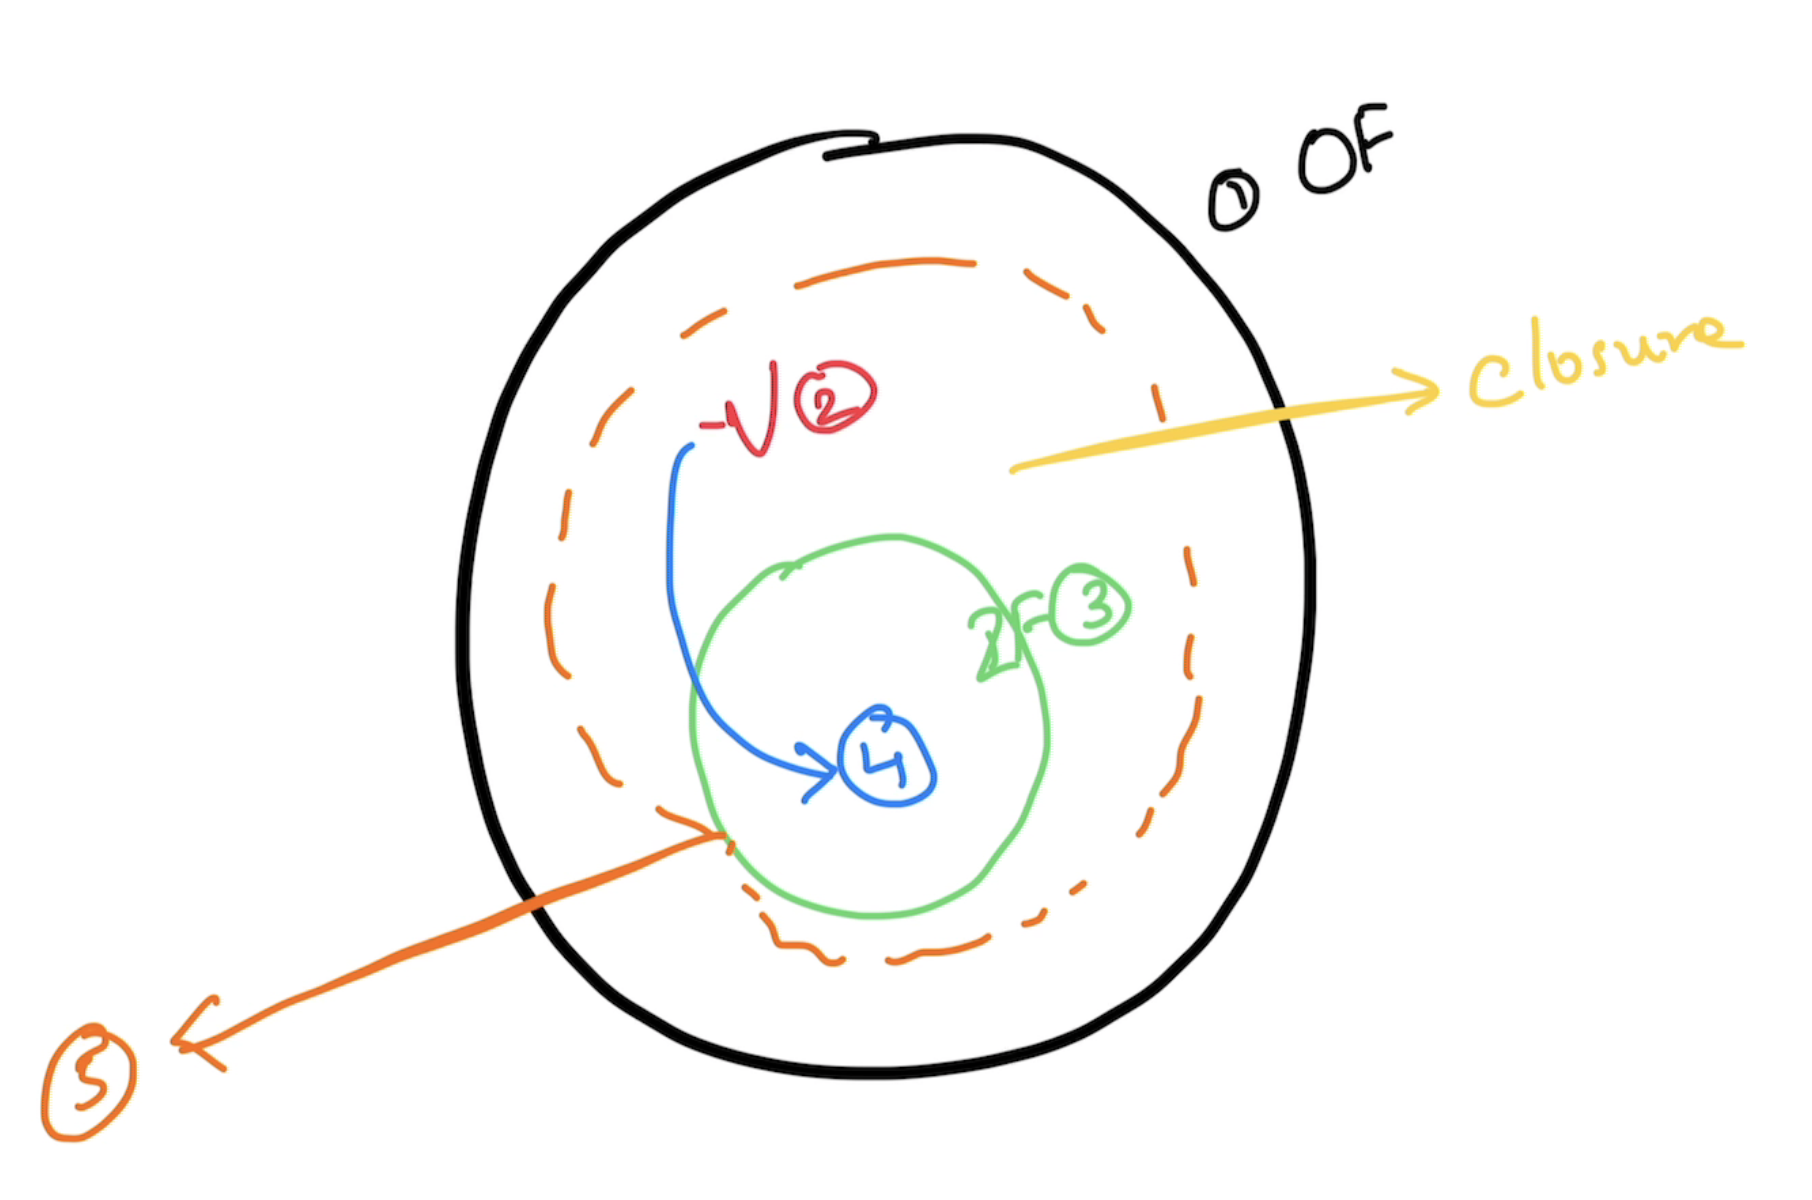 ① OF
Closure
-V ②
IF ③
④
⑤